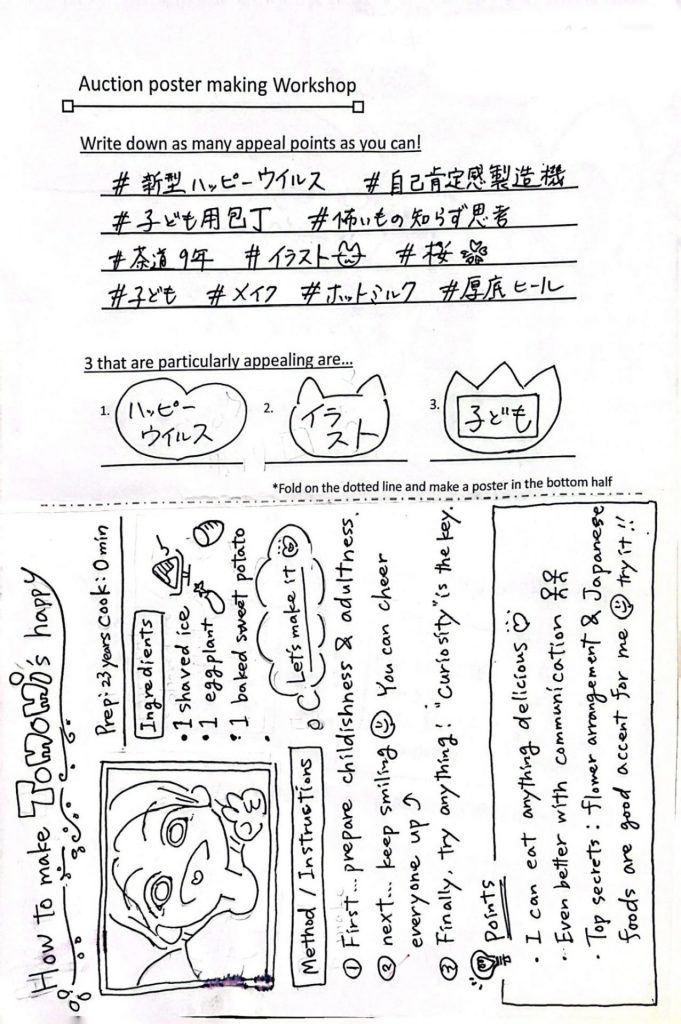 Auction poster making Workshop
Write down as many appeal points as you can!
# 新型ハッピーウイルス # 自己肯定感製造機
# 子ども用包丁 #怖いもの知らず思考
#茶道9年 # イラスト # 桜
#子ども #メイク #ホットミルク #厚底ヒール
3 that are particularly appealing are...
1. ハッピー
ウイルス
2. イラ
スト
3. 子ども
*Fold on the dotted line and make a poster in the bottom half
How to make TOMOMI's happy
Prep: 23 years Cook: 0 min
Ingredients
• 1 shaved ice
• 1 eggplant
• 1 baked sweet potato
Let's make it
Method / Instructions
① First... prepare childishness & adultness.
② next... keep smiling You can cheer
everyone up
③ Finally, try anything! "Curiosity" is the key.
Points
• I can eat anything delicious
• Even better with communication
• Top secrets : flower arrangement & Japanese
foods are good accent for me try it!!